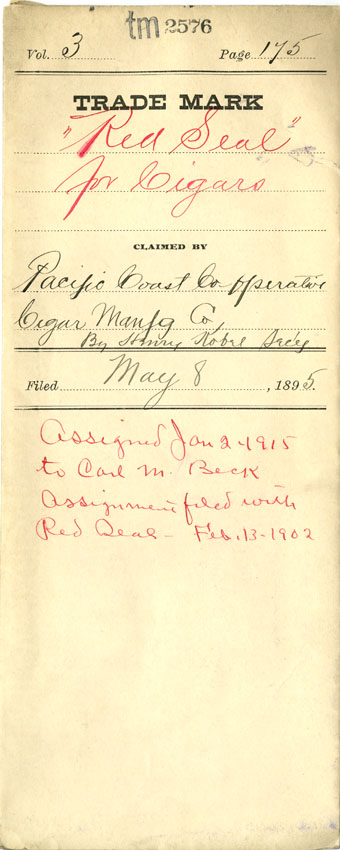 tm 2576
Vol. 3 Page 175
TRADE MARK
"Red Seal"
for Cigars
CLAIMED BY
Pacific Coast Co operative
Cigar Manfg Co,
By Henry Kobel Sec'ey
Filed May 8, 1895.
Assigned Jan 2-1915
to Carl M. Beck
Assignment filed with
Red Seal - Feb. 13-1902